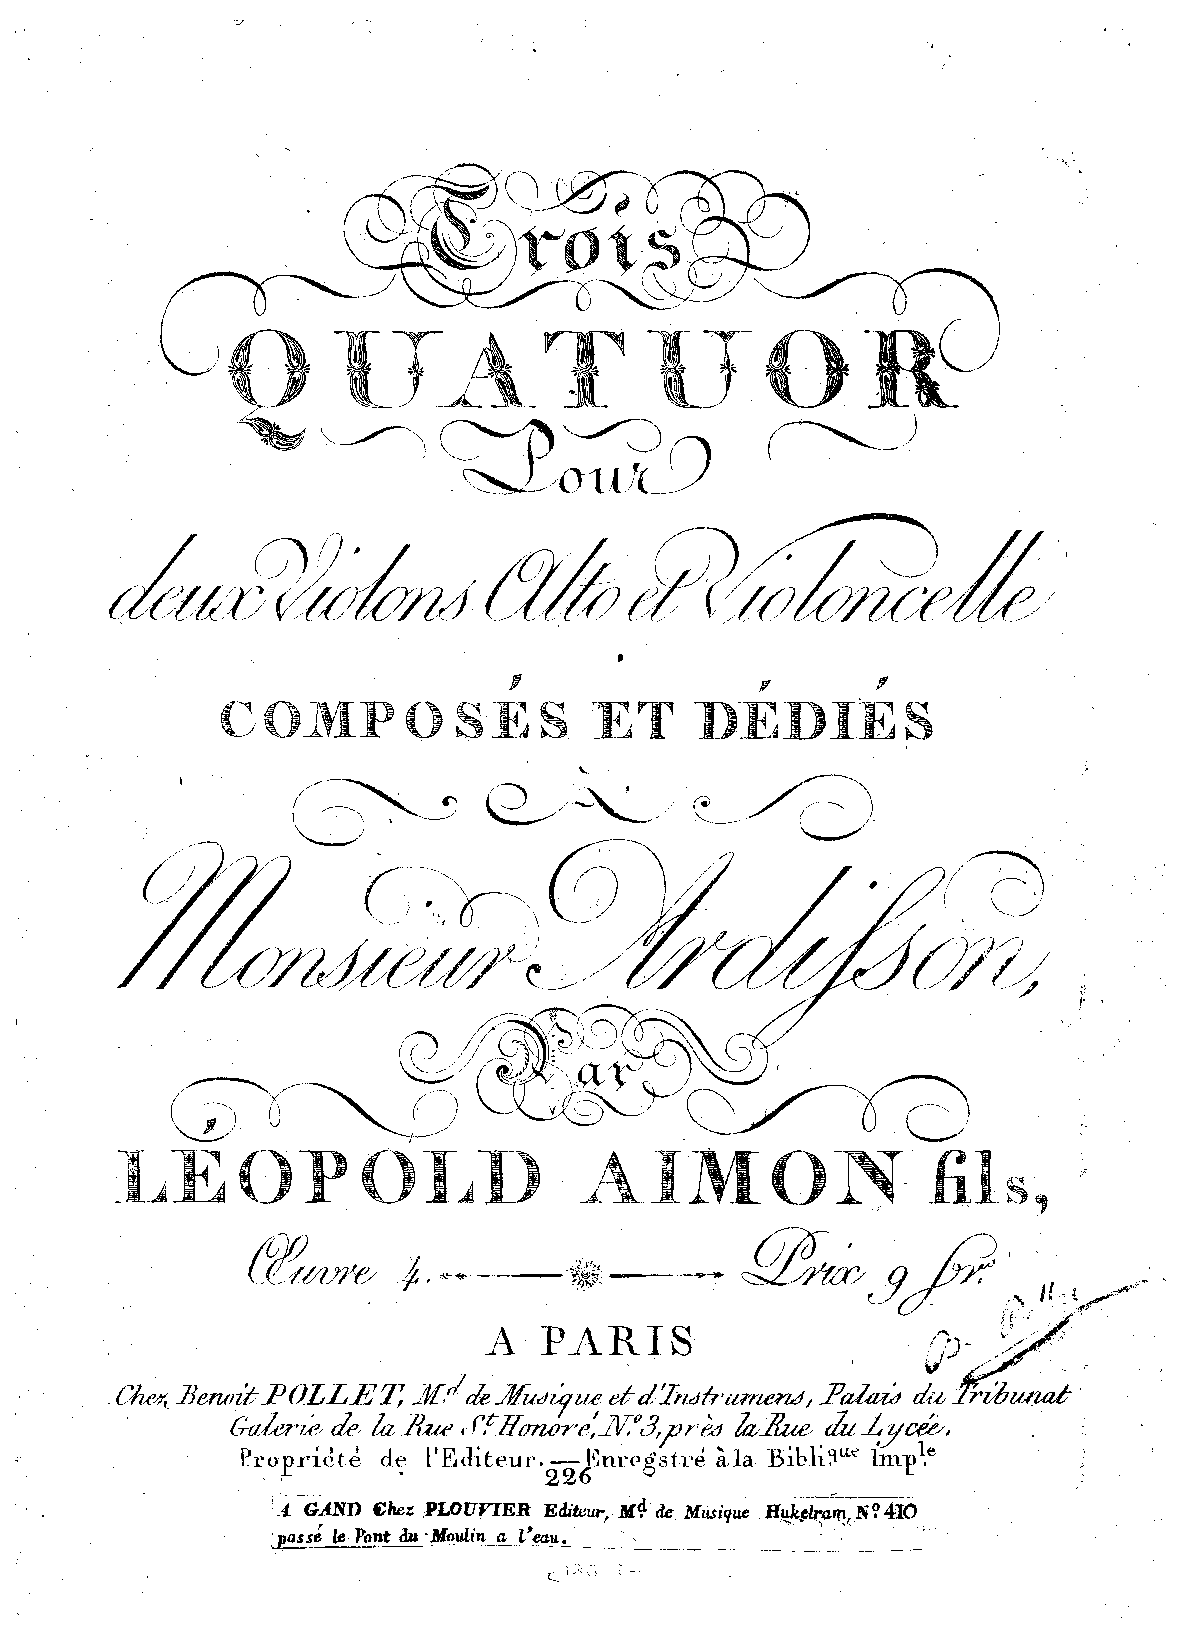 Trois
QUATUOR
Pour
deux Violons Alto et Violoncelle
COMPOSÉS ET DÉDIÉS
à
Monsieur Ardisson,
Par
LÉOPOLD AIMON fils,
Œuvre 4. Prix 9 fr.
A PARIS
Chez Benoit POLLET, Md. de Musique et d'Instrumens, Palais du Tribunat
Galerie de la Rue St. Honoré, No. 3, près la Rue du Lycée.
Propriété de l'Editeur. — Enregstré à la Biblique imple
226
A GAND Chez PLOUVIER Editeur, Md. de Musique Hukelram, No. 410
passé le Pont du Moulin a l'eau.